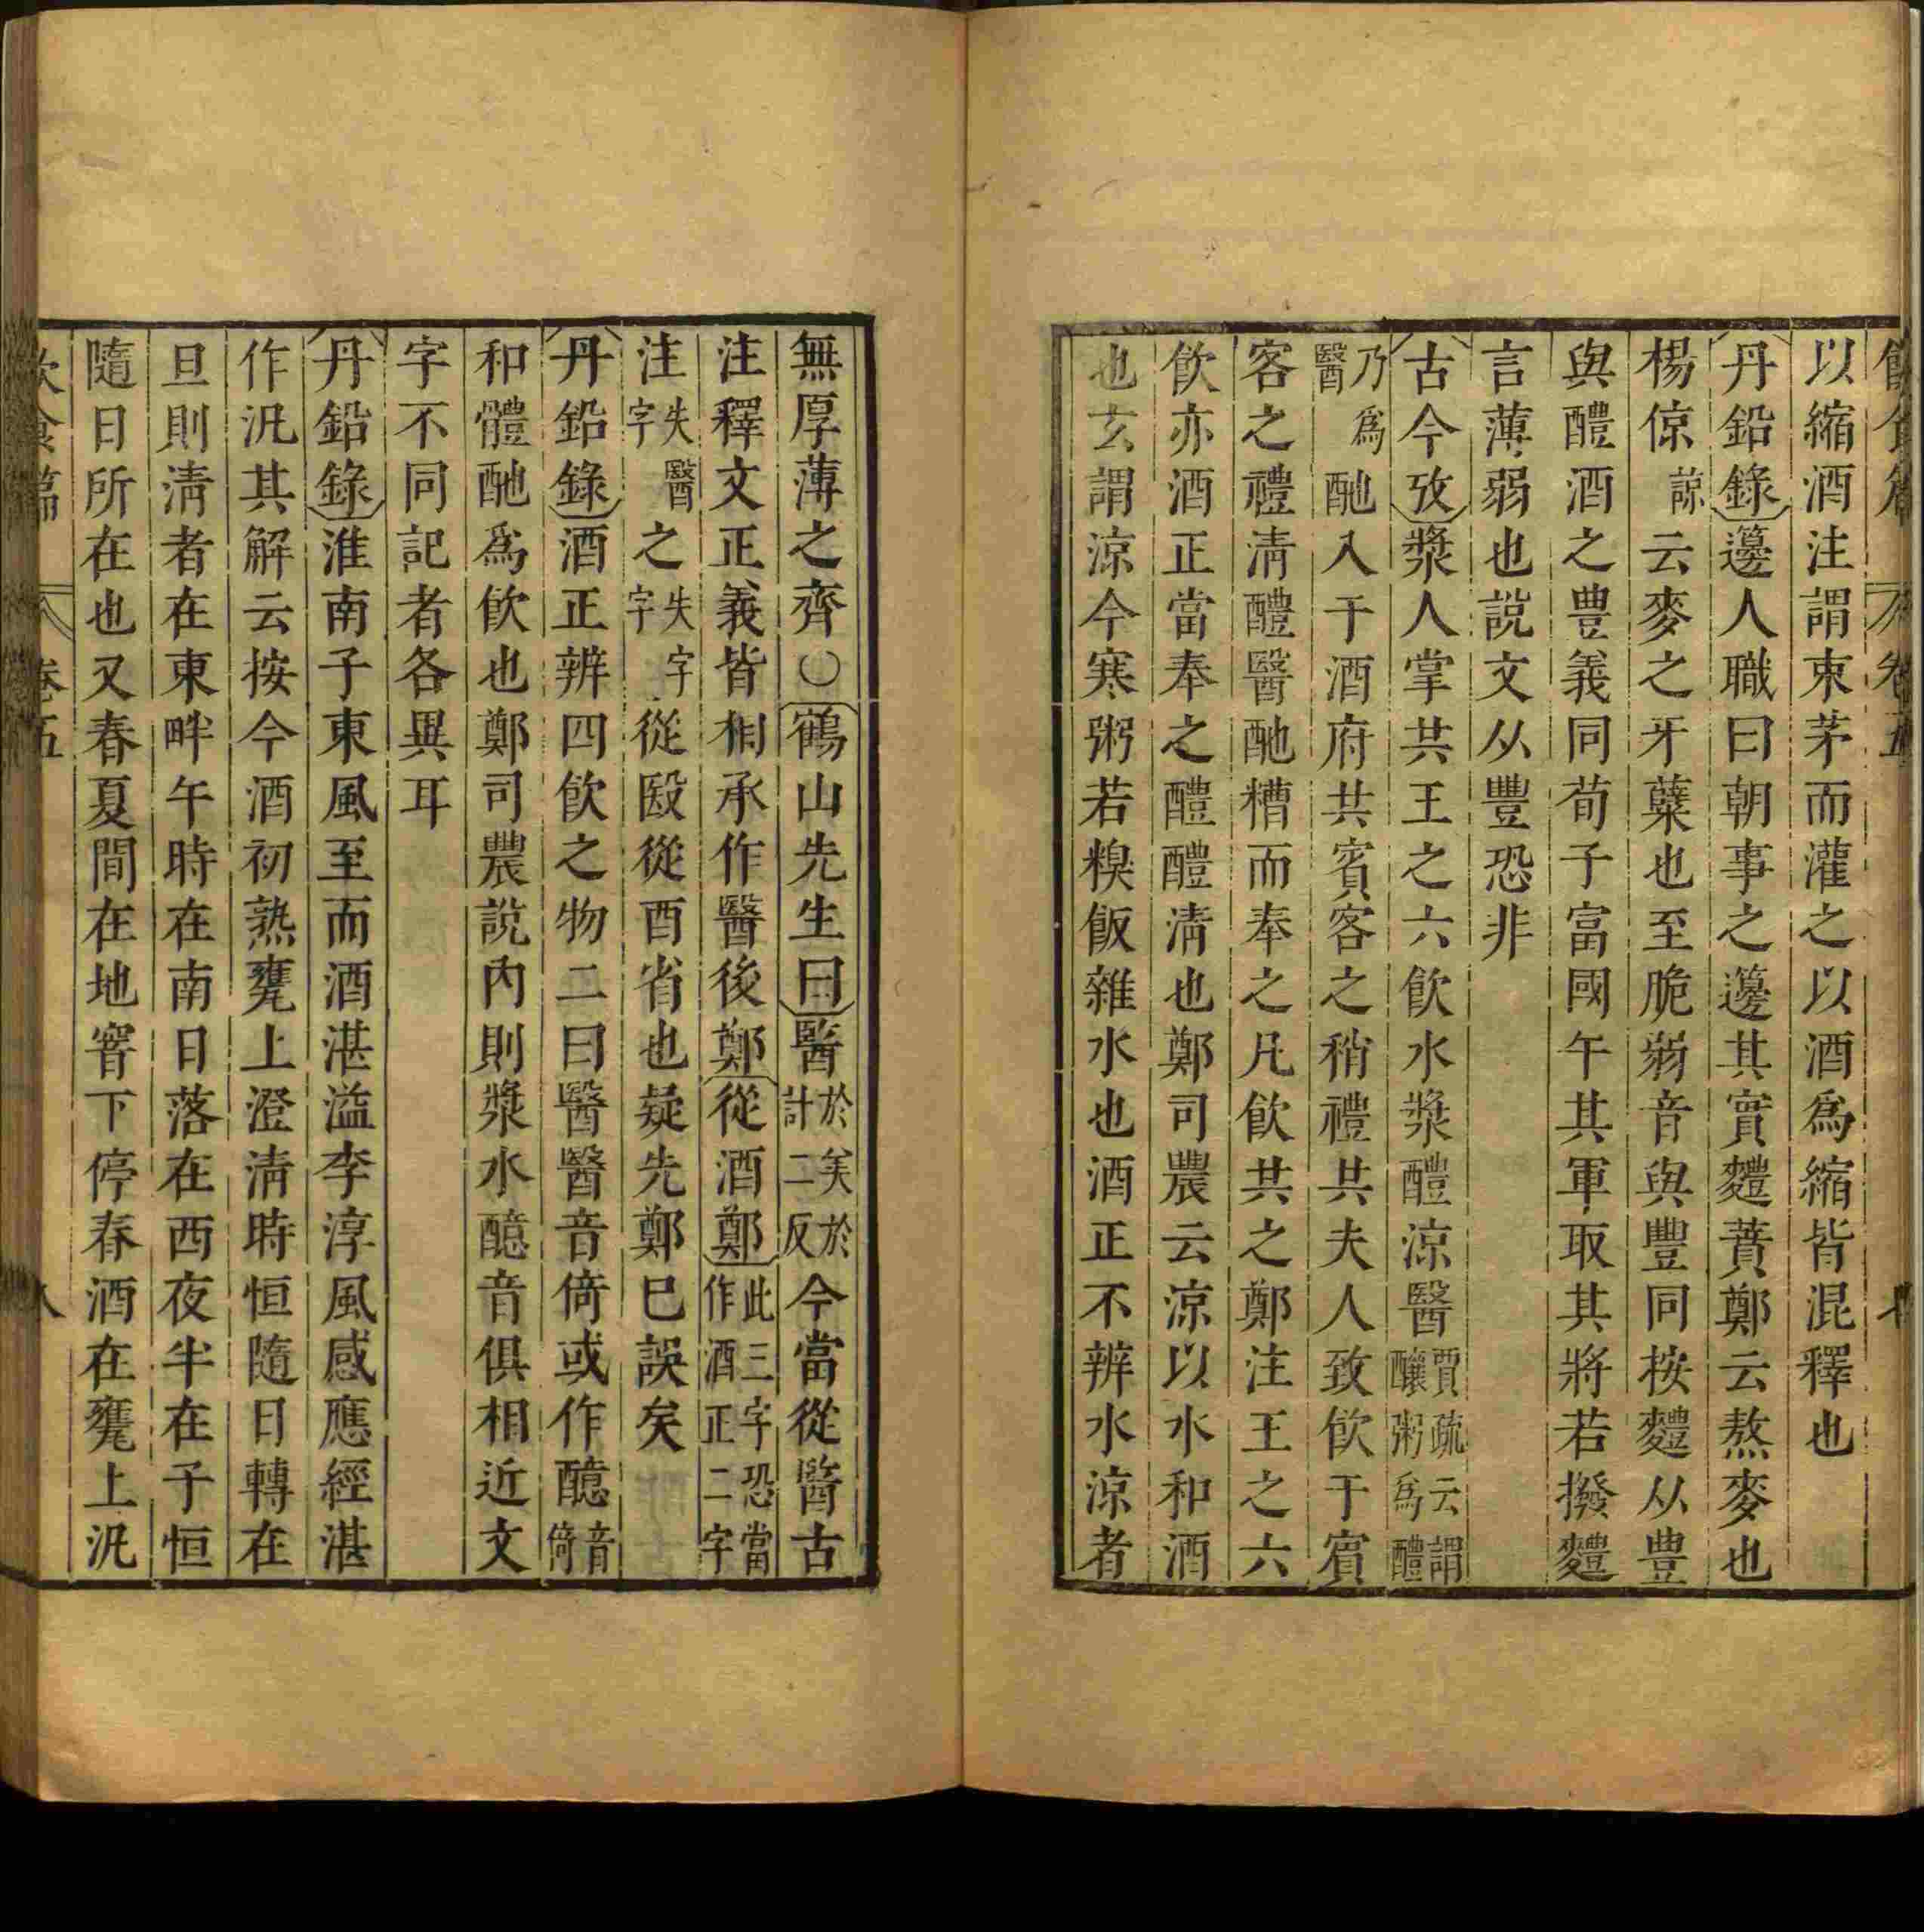 以縮酒注謂束茅而灌之以酒爲縮皆混釋也
丹鉛錄籩人職曰朝事之籩其實麷蕡鄭云熬麥也
楊倞諒云麥之牙蘖也至脆弱音與豐同按麷从豊
與醴酒之豊義同荀子富國午其軍取其將若撥麷
言薄弱也説文从豐恐非
古今攷漿人掌共王之六飮水漿醴涼醫賈疏云謂釀粥爲醴
乃爲醫酏入于酒府共賓客之稍禮共夫人致飮于賓
客之禮淸醴醫酏糟而奉之凡飮共之鄭注王之六
飮亦酒正當奉之醴醴淸也鄭司農云涼以水和酒
也玄謂涼今寒粥若糗飯雜水也酒正不辨水涼者
無厚薄之齊○鶴山先生曰醫於計矣二於反今當從醫古
注釋文正義皆相承作醫後鄭從酒鄭此三字恐當作酒正二字
注失醫字之失字字從殹從酉省也疑先鄭巳誤矣
丹鉛錄酒正辨四飮之物二曰醫醫音倚或作醷音倚
和體酏爲飮也鄭司農說內則漿水醷音俱相近文
字不同記者各異耳
丹鉛錄淮南子東風至而酒湛溢李淳風感應經湛
作汎其解云按今酒初熟甕上澄淸時恒隨日轉在
旦則淸者在東畔午時在南日落在西夜半在子恒
隨日所在也又春夏間在地窖下停春酒在甕上汎
飮食篇 卷五 八